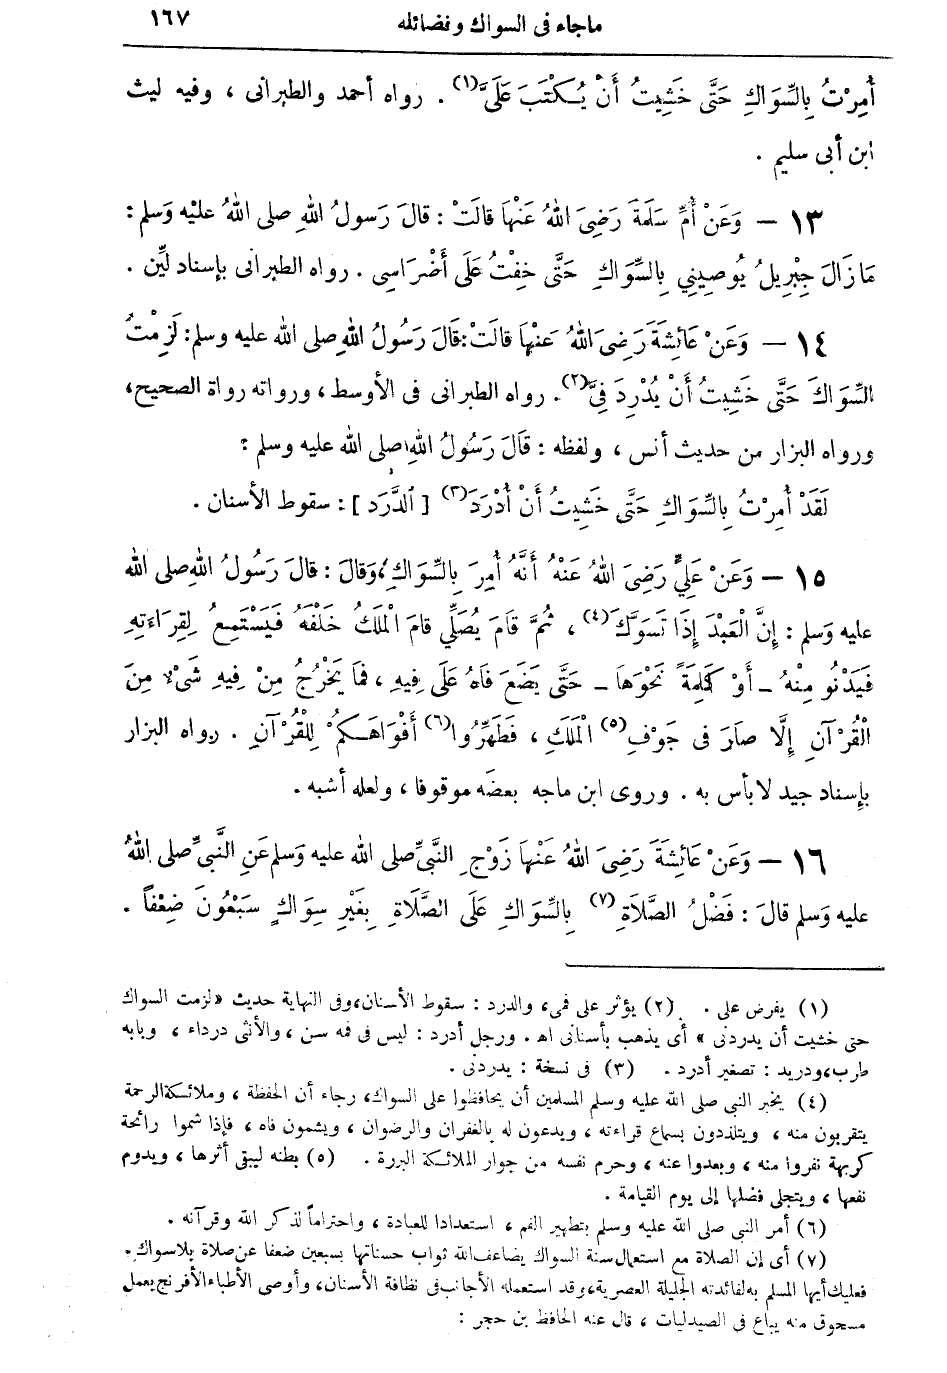 ماجاء فى السواك وفضائله ١٦٧
أُمِرْتُ بِالسِّوَاكِ حَتَّى خَشِيتُ أَنْ يُكْتَبَ عَلَيَّ (١) . رواه أحمد والطبرانى ، وفيه ليث
ابن أبى سليم .
١٣ – وَعَنْ أُمِّ سَلَمَةَ رَضِىَ اللهُ عَنْهَا قَالَتْ : قالَ رَسولُ اللهِ صلى اللهُ عليْه وَسلم :
مَا زَالَ جِبْرِيلُ يُوصِينِي بِالسِّوَاكِ حَتَّى خِفْتُ عَلَى أَضْرَاسِى . رواه الطبرانى بإسناد ليِّن .
١٤ – وَعَنْ عَائِشَةَ رَضِىَ اللهُ عَنْهَا قالَتْ : قَالَ رَسُولُ اللهِ صلى الله عليه وسلم : لَزِمْتُ
السِّوَاكَ حَتَّى خَشِيتُ أَنْ يُدْرِدَ فِىَّ (٢) . رواه الطبرانى فى الأوسط ، ورواته رواة الصحيح ،
ورواه البزار من حديث أنس ، ولفظه : قَالَ رَسُولُ اللهِ صلى الله عليه وسلم :
لَقَدْ أُمِرْتُ بِالسِّوَاكِ حَتَّى خَشِيتُ أَنْ أَدْرَدَ (٣) [ الدَّرَد ] : سقوط الأسنان .
١٥ – وَعَنْ عَلِيٍّ رَضِىَ اللهُ عَنْهُ أَنَّهُ أَمَرَ بِالسِّوَاكِ ، وَقالَ : قالَ رَسُولُ اللهِ صلى الله
عليه وَسلم : إِنَّ الْعَبْدَ إِذَا تَسَوَّكَ (٤) ، ثُمَّ قَامَ يُصَلِّي قامَ الْمَلَكُ خَلْفَهُ فَيَسْتَمِعُ لِقِرَاءَتِهِ
فَيَدْنُو مِنْهُ – أَوْ كَلِمَةً نَحْوَهَا – حَتَّى يَضَعَ فَاهُ عَلَى فِيهِ ، فَمَا يَخْرُجُ مِنْ فِيهِ شَىْءٌ مِنَ
الْقُرْآنِ إِلَّا صَارَ فى جَوْفِ (٥) الْمَلَكِ ، فَطَهِّرُوا (٦) أَفْوَاهَكُمْ لِلْقُرْآنِ . رواه البزار
بإِسناد جيد لا بأس به . وروى ابن ماجه بعضَه موقوفا ، ولعله أشبه .
١٦ – وَعَنْ عَائِشَةَ رَضِىَ اللهُ عَنْهَا زَوْجِ النَّبىِّ صلى الله عليه وَسلم عَنِ النَّبىِّ صلى اللهُ
عليه وَسلم قالَ : فَضْلُ الصَّلَاةِ (٧) بِالسِّوَاكِ عَلَى الصَّلَاةِ بِغَيْرِ سِوَاكٍ سَبْعُونَ ضِعْفاً .
(١) يفرض على . (٢) يؤثر على فمى ، والدرد : سقوط الأسنان ، وفى النهاية حديث « لزمت السواك
حتى خشيت أن يدردنى » أى يذهب بأسنانى اه . ورجل أدرد : ليس فى فمه سن ، والأنثى درداء ، وبابه
طرب ، ودريد : تصغير أدرد . (٣) فى نسخة : يدردنى .
(٤) يخبر النبى صلى الله عليه وسلم المسلمين أن يحافظوا على السواك ، رجاء أن الحفظة ، وملائكة الرحمة
يتقربون منه ، ويتلذدون بسماع قراءته ، ويدعون له بالغفران والرضوان ، ويشمون فاه ، فإذا شموا رائحة
كريهة نفروا منه ، وبعدوا عنه ، وحرم نفسه من جوار الملائكة البررة . (٥) بطنه ليبقى أثرها ، ويدوم
نفعها ، ويتجلى فضلها إلى يوم القيامة .
(٦) أمر النبى صلى الله عليه وسلم بتطهير الفم ، استعدادا للعبادة ، واحتراماً لذكر الله وقرآنه .
(٧) أى إن الصلاة مع استعمال سنة السواك يضاعف الله ثواب حسناتها بسبعين ضعفا عن صلاة بلا سواك .
فعليك أيها المسلم به لفائدته الجليلة العصرية ، وقد استعمله الأجانب فى نظافة الأسنان ، وأوصى الأطباء الأفرنج بعمل
مسحوق منه يباع فى الصيدليات ، قال عنه الحافظ بن حجر :